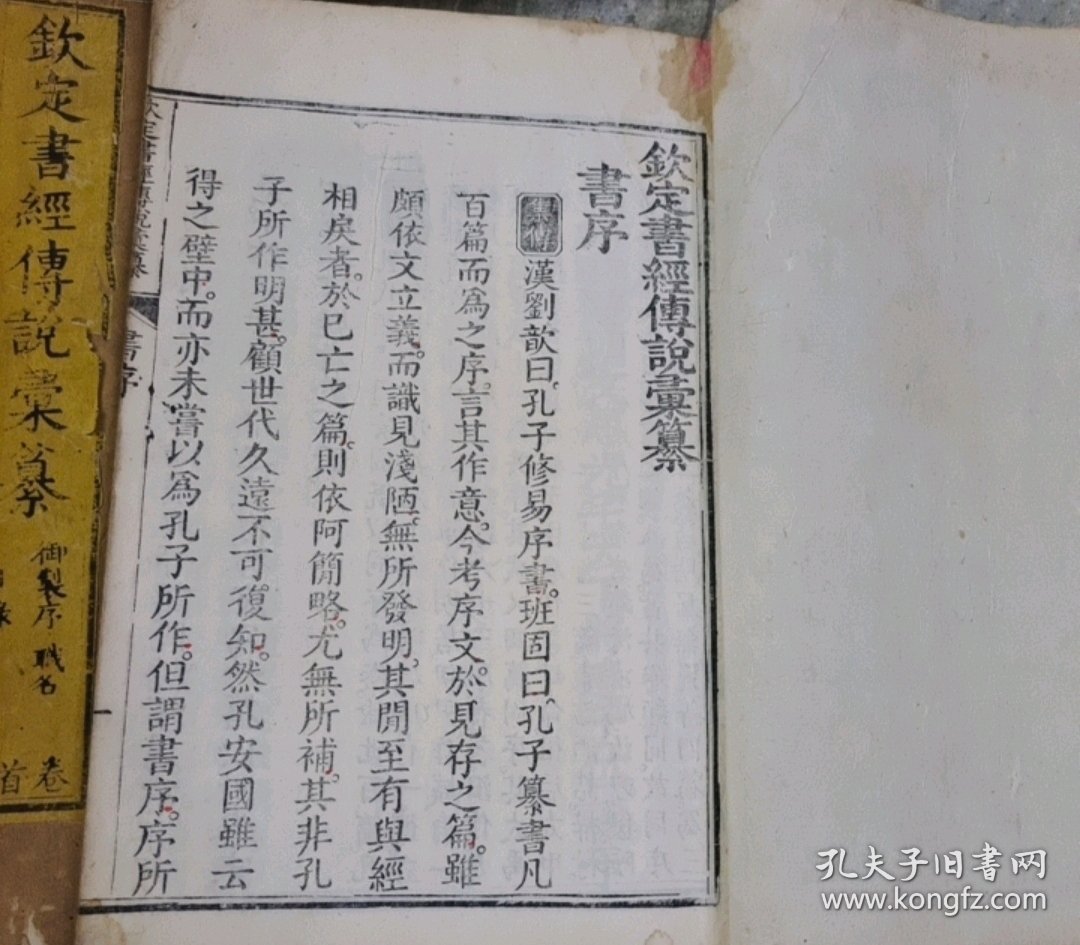 欽定書經傳說彙纂
書序
集傳漢劉歆曰。孔子修易序書。班固曰。孔子纂書凡
百篇而為之序。言其作意。今考序文。於見存之篇。雖
頗依文立義。而識見淺陋。無所發明。其閒至有與經
相戾者。於已亡之篇。則依阿簡略。尤無所補。其非孔
子所作明甚。顧世代久遠。不可復知。然孔安國雖云
得之壁中。而亦未嘗以為孔子所作。但謂書序。序所
欽定書經傳說彙纂
書序
一
欽定書經傳說彙纂
御製序 職名
卷
首
孔夫子旧书网
www.kongfz.com